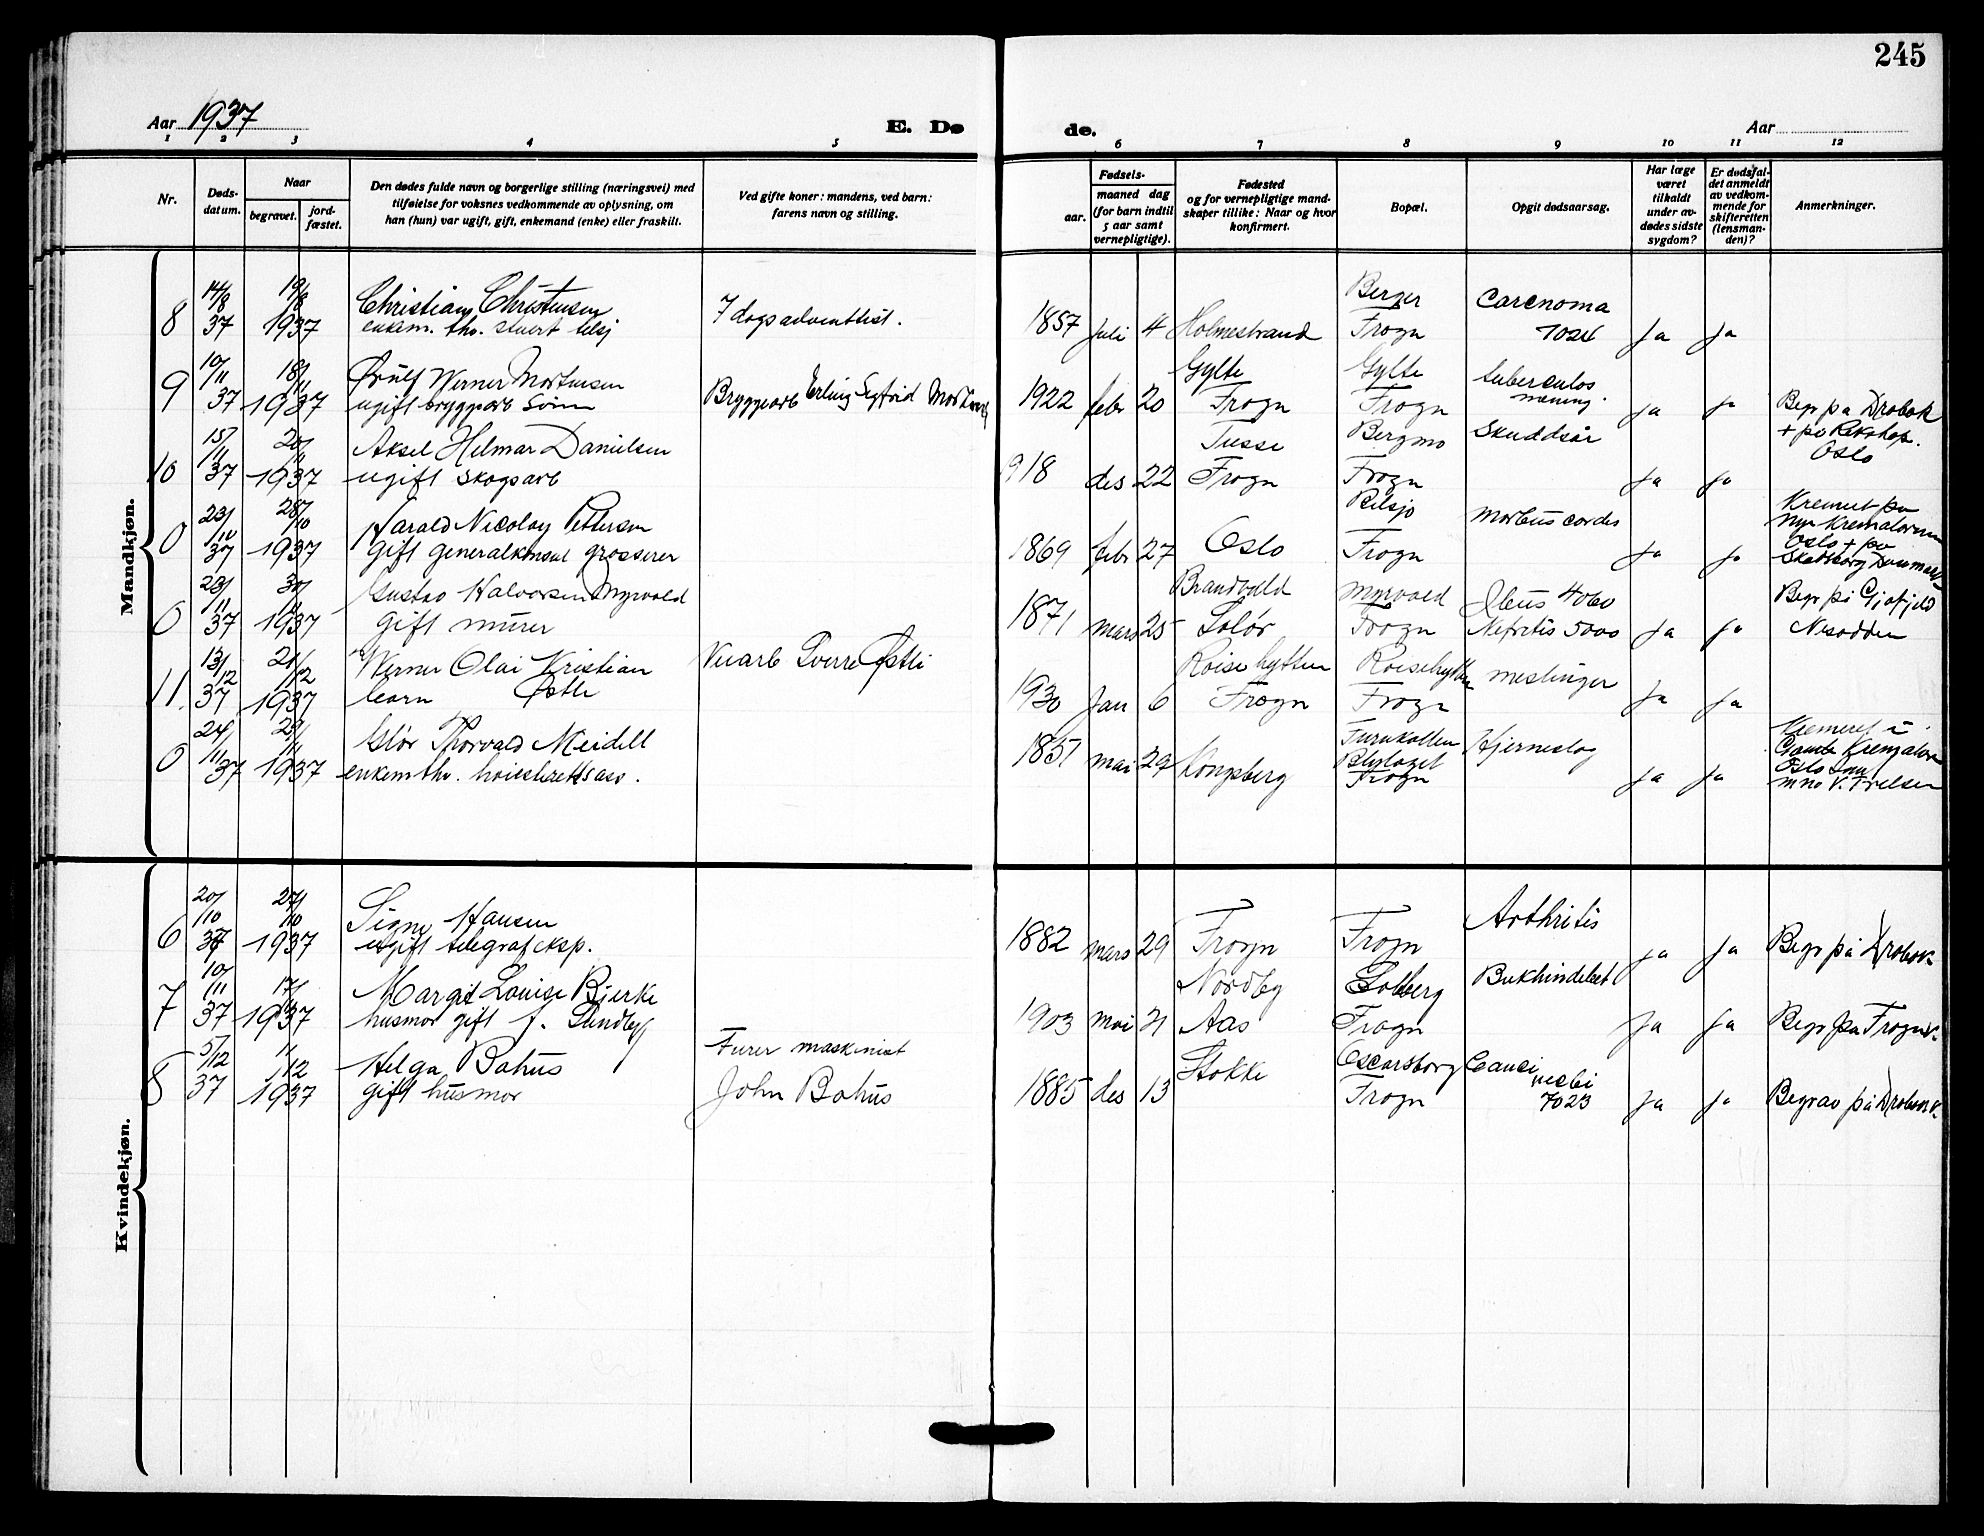 245
Aar 1937
E. Dø
de.
Aar
1 2 3 4 5 6 7 8 9 10 11 12
Nr.
Døds-
datum.
Naar
begravet.
jord-
fæstet.
Den dødes fulde navn og borgerlige stilling (næringsvei) med
tilføielse for voksnes vedkommende av oplysning, om
han (hun) var ugift, gift, enkemand (enke) eller fraskilt.
Ved gifte koner: mandens, ved barn:
farens navn og stilling.
aar.
Fødsels-
maaned dag
(for barn indtil
5 aar samt
vernepligtige).
Fødested
og for vernepligtige mand-
skaper tillike: Naar og hvor
konfirmert.
Bopæl.
Opgit dødsaarsag.
Har læge
været
tilkaldt
under av-
dødes sidste
sygdom?
Er dødsfal-
det anmeldt
av vedkom-
mende for
skifteretten
(lensman-
den)?
Anmerkninger.
Mandkjøn.
14/8 19/8 Christian Christensen Berger Carcnoma
8 37 1937 enkem. fhv. stuert 7 dags adventist. 1857 Juli 4 Holmestrand Frogn 7024 Ja Ja
10/11 18/11 Ørulf Werner Mortensen Gylte Gylte tuberculos
9 37 1937 ugift bryggarb Sønn Bryggearb Erling Sigfrid 1922 febr 20 Frogn Frogn mening. Ja Ja Begr på Drøbak
15/11 20/11 Aksel Helmar Danielsen Tusse Bergmo Skuddsår
10 37 1937 ugift skogsarb 918 des 22 Frogn Frogn Ja Ja Oslo
23/10 28/10 Harald Nicolay Pettersen morbus cordis Kremert på
0 37 1937 gift generalkonsul grosserer 1869 febr 27 Oslo Frogn Ja Ja Oslo + på
23/11 30/11 Gustav Halvorsen Myrvold Brandvold Myrvold Ileus 4060 Begr på Gjøfjeld
0 37 1937 gift murer 1871 mars 25 Solør Frogn Nefritis 5000 Ja Ja Nesodden
13/12 21/12 Werner Olai Kristian Veiarb Sverre Østli Roisehytten Roisehytten meslinger
11 37 1937 barn Østli 1930 Jan 6 Frogn Frogn Ja Ja
24/11 Glør Thorvald Meidell Furukollen Hjerneslag Kremeret i
0 37 1937 enkem fhv. 1851 mai 29 Kongsberg Frogn Ja Ja Gamle Krematoriu
Oslo
Kvindekjøn.
20/10 27/10 Signe Hansen Arthritis
6 37 1937 ugift telegrafeksp. 1882 mars 29 Frogn Frogn Ja Ja Begr på Drøbak
10/11 17/11 Margit Louise Bjerke Nordby Solberg Bukhindebet
7 37 1937 husmor gift f. Sundby 1903 mai 21 Aas Frogn Ja Ja Begr på Frogn v.
5/12 11/12 Helga Bahus Furer maskinist Stokke Oscarsborg
8 37 1937 gift husmor John Bahus 1885 des 13 Frogn 7023 Ja Ja Begrav på Drøbak v.